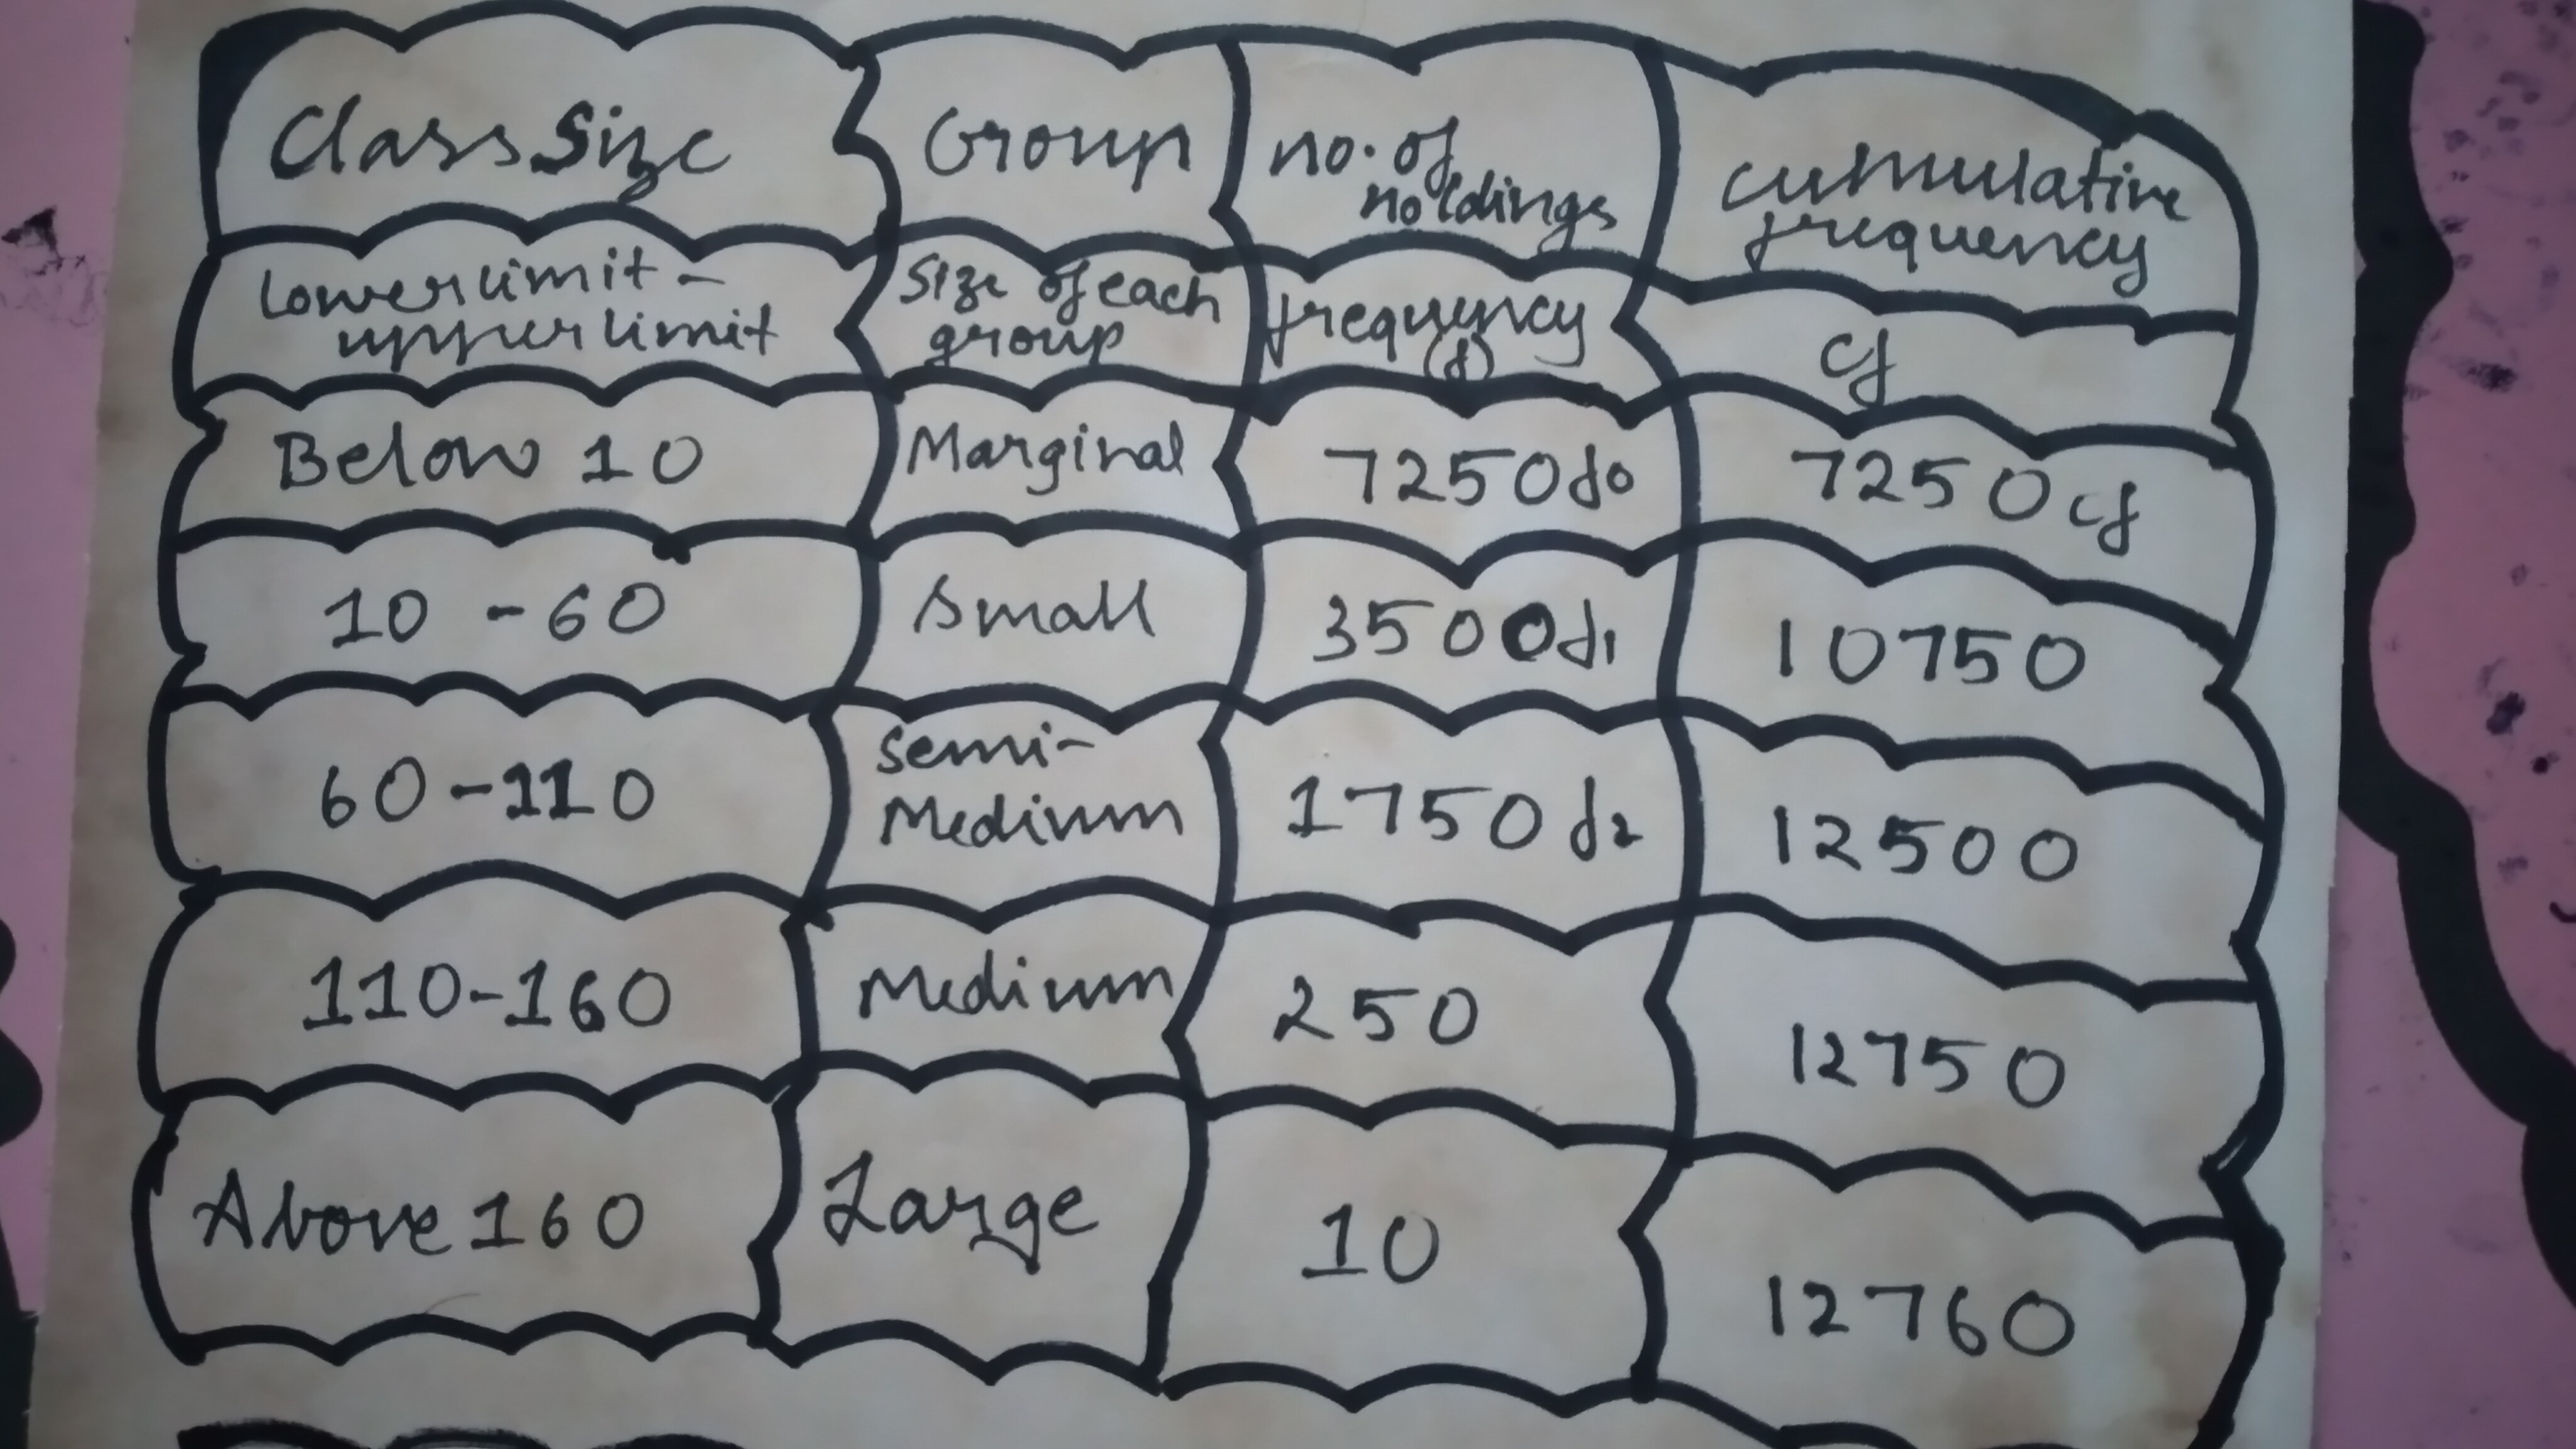 Class Size
Group
no. of
holdings
cumulative
frequency
Lower limit -
upper limit
Size of each
group
frequency
(f)
cf
Below 10
Marginal
7250 f0
7250 cf
10 - 60
Small
3500 f1
10750
60 - 110
semi-
Medium
1750 f2
12500
110 - 160
Medium
250
12750
Above 160
Large
10
12760